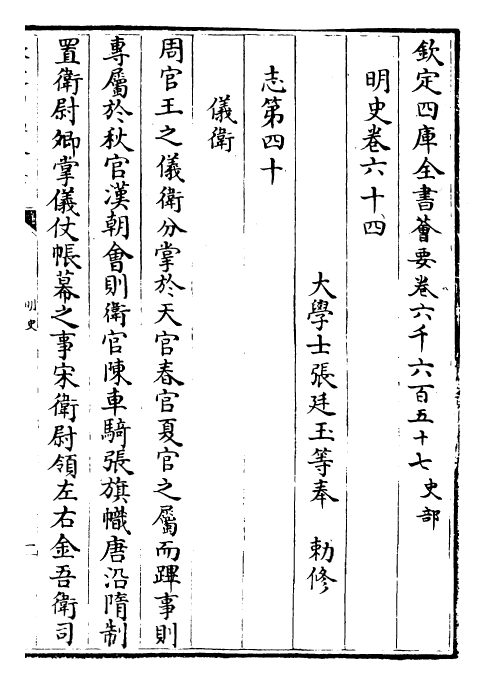 欽定四庫全書薈要卷六千六百五十七 史部
明史卷六十四
大學士張廷玉等奉 勅修
志第四十
儀衛
周官王之儀衛分掌於天官春官夏官之屬而蹕事則
專屬於秋官漢朝會則衛官陳車騎張旗幟唐沿隋制
置衛尉卿掌儀仗帳幕之事宋衛尉領左右金吾衛司
明史
一